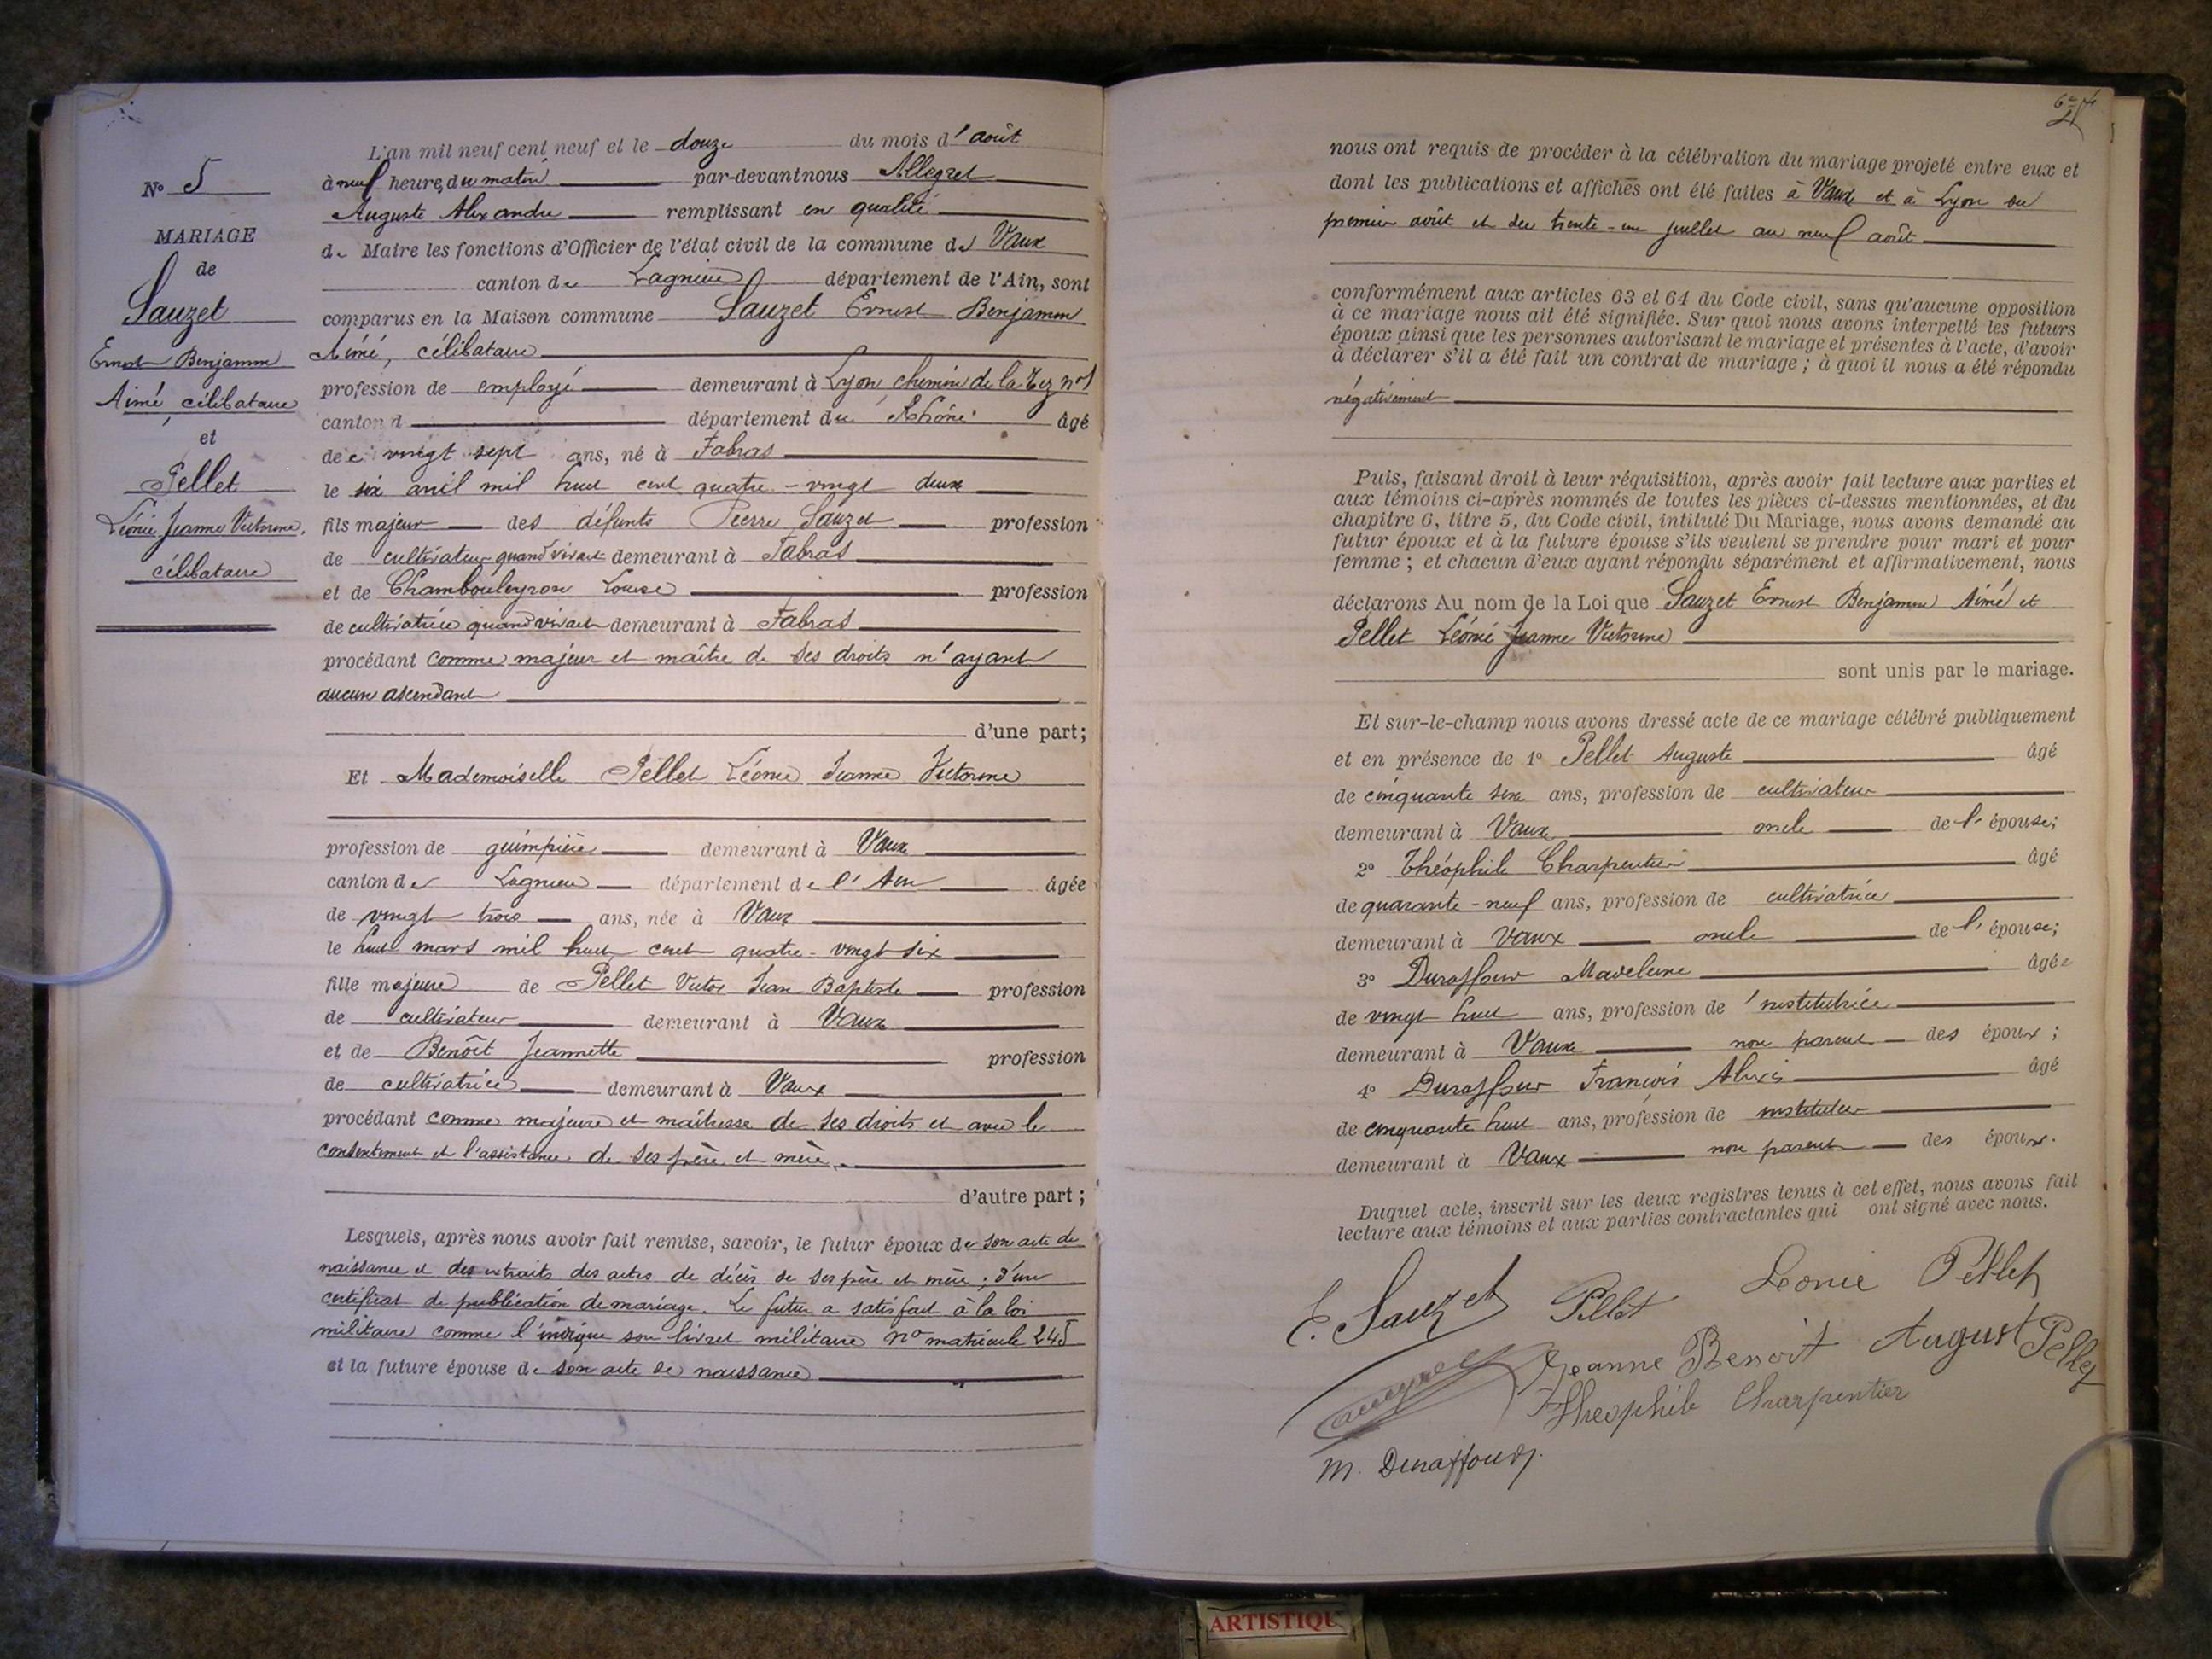 N° 5
MARIAGE
de
Sauzet
Ernest Benjamin
Aimé célibataire
et
Pellet
Léonie Jeanne Victorine,
célibataire
L'an mil neuf cent neuf et le douze du mois d'août
à neuf heures du matin par-devant nous Allegret
Auguste Alexandre remplissant en qualité
de Maire les fonctions d'Officier de l'état civil de la commune de Vaux
canton de Lagnieu département de l'Ain, sont
comparus en la Maison commune Sauzet Ernest Benjamin
Aimé, célibataire
profession de employé demeurant à Lyon, chemin de la n° 1
canton d département du Rhône âgé
de vingt sept ans, né à Fabras
le six avril mil huit cent quatre-vingt deux
fils majeur des défunts Pierre Sauzet profession
de cultivateur quand vivait demeurant à Fabras
et de Chambouleyron Louise profession
de cultivatrice quand vivait demeurant à Fabras
procédant comme majeur et maître de ses droits n'ayant
aucun ascendant
d'une part;
Et Mademoiselle Pellet Léonie Jeanne Victorine
profession de guimpière demeurant à Vaux
canton de Lagnieu département de l'Ain âgée
de vingt trois ans, née à Vaux
le huit mars mil huit cent quatre-vingt six
fille majeure de Pellet Victor Jean Baptiste profession
de cultivateur demeurant à Vaux
et de Benoît Jeannette profession
de cultivatrice demeurant à Vaux
procédant comme majeure et maîtresse de ses droits et avec le
consentement et l'assistance de ses père et mère.
d'autre part;
Lesquels, après nous avoir fait remise, savoir, le futur époux de son acte de
naissance et des extraits des actes de décès de ses père et mère; d'un
certificat de publication de mariage. Le futur a satisfait à la loi
militaire comme l'indique son livret militaire n° matricule 245
et la future épouse de son acte de naissance
nous ont requis de procéder à la célébration du mariage projeté entre eux et
dont les publications et affiches ont été faites à Vaux et à Lyon du
premier août et du trente-un juillet au neuf août
conformément aux articles 63 et 64 du Code civil, sans qu'aucune opposition
à ce mariage nous ait été signifiée. Sur quoi nous avons interpellé les futurs
époux ainsi que les personnes autorisant le mariage et présentes à l'acte, d'avoir
à déclarer s'il a été fait un contrat de mariage; à quoi il nous a été répondu
négativement
Puis, faisant droit à leur réquisition, après avoir fait lecture aux parties et
aux témoins ci-après nommés de toutes les pièces ci-dessus mentionnées, et du
chapitre 6, titre 5, du Code civil, intitulé Du Mariage, nous avons demandé au
futur époux et à la future épouse s'ils veulent se prendre pour mari et pour
femme; et chacun d'eux ayant répondu séparément et affirmativement, nous
déclarons Au nom de la Loi que Sauzet Ernest Benjamin Aimé et
Pellet Léonie Jeanne Victorine
sont unis par le mariage.
Et sur-le-champ nous avons dressé acte de ce mariage célébré publiquement
et en présence de 1° Pellet Auguste âgé
de cinquante six ans, profession de cultivateur
demeurant à Vaux oncle de l'épouse;
2° Théophile Charpentier âgé
de quarante-neuf ans, profession de cultivatrice
demeurant à Vaux oncle de l'épouse;
3° Duraffour Madeleine âgée
de vingt huit ans, profession de institutrice
demeurant à Vaux non parent des époux;
4° Duraffour François Alexis âgé
de cinquante huit ans, profession de instituteur
demeurant à Vaux non parent des époux.
Duquel acte, inscrit sur les deux registres tenus à cet effet, nous avons fait
lecture aux témoins et aux parties contractantes qui ont signé avec nous.
E. Sauzet Pellet Léonie Pellet
Jeanne Benoit August Pellet
Théophile Charpentier
M. Duraffour
ARTISTIQU